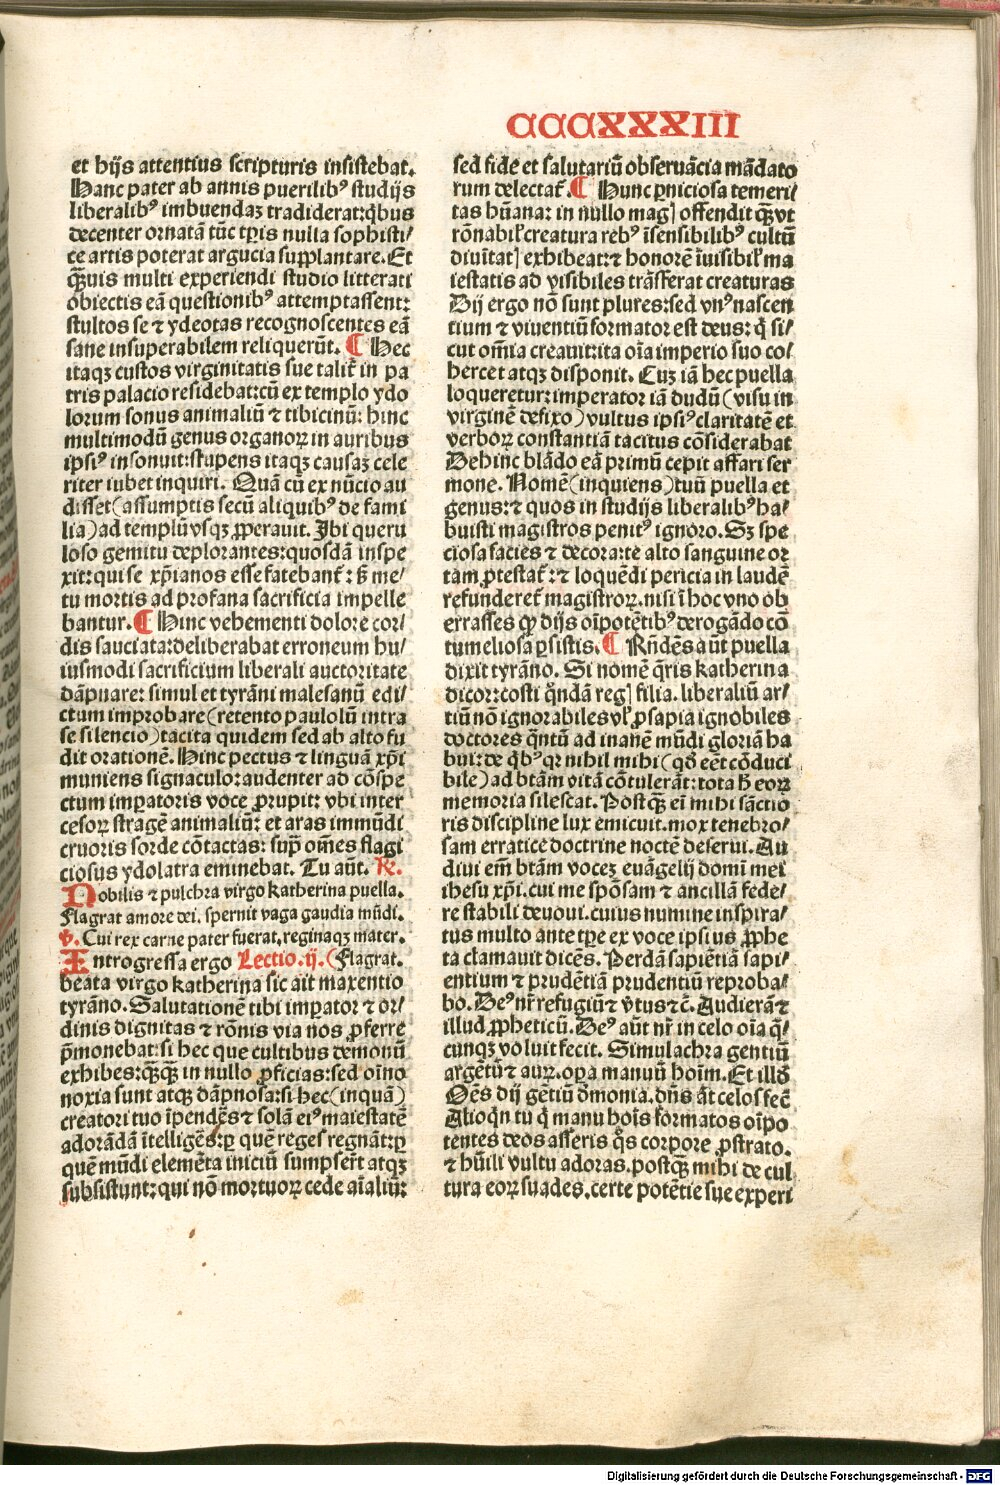 CCCXXXIII
et hijs attentius scripturis insistebat.
Hanc pater ab annis puerilibꝰ studijs
liberalibꝰ imbuendaꝫ tradiderat: q̃bus
decenter ornatã tũc tꝑis nulla sophisti/
ce artis poterat argucia supplantare. Et
q̃ꝫuis multi experiendi studio litterati
obiectis eã questionibꝰ attemptassent:
stultos se ⁊ ydeotas recognoscentes eã
sane insuperabilem reliquerũt. ¶ Hec
itaqꝫ custos virginitatis sue talit̃ in pa
tris palacio residebat: cũ ex templo ydo
lorum sonus animaliũ ⁊ tibicinũ: hinc
multimodũ genus organoꝝ in auribus
ipsiꝰ insonuit: stupens itaqꝫ causaꝫ cele
riter iubet inquiri. Quã cũ ex nũcio au
disset (assumptis secũ aliquibꝰ de fami
lia) ad templũ vsqꝫ ꝓperauit. Ibi queru
loso gemitu deplorantes: quosdã inspe
xit: qui se xp̃ianos esse fatebant̃: ß me/
tu mortis ad profana sacrificia impelle
bantur. ¶ Hinc vehementi dolore cor/
dis sauciata: deliberabat erroneum hu/
iusmodi sacrificium liberali auctoritate
dãpnare: simul et tyrãni malesanũ edi/
ctum improbare (retento paulolũ intra
se silencio) tacita quidem sed ab alto fu
dit orationẽ. Hinc pectus ⁊ linguã xp̃i
muniens signaculo: audenter ad cõspe
ctum imꝑatoris voce ꝓrupit: vbi inter
cesoꝝ stragẽ animaliũ: et aras immũdi
cruoris sorde cõtactas: sup̃ om̃es flagi
ciosus ydolatra eminebat. Tu aũt. ℟.
Nobilis ⁊ pulchra virgo Katherina puella.
Flagrat amore dei. spernit vaga gaudia mũdi.
℣. Cui rex carne pater fuerat, reginaqꝫ mater.
Introgressa ergo Lectio. ij. (Flagrat.
beata virgo Katherina sic ait maxentio
tyrãno. Salutationẽ tibi imꝑator ⁊ or/
dinis dignitas ⁊ rõnis via nos ꝓferre
p̃monebat: si hec que cultibus demonũ
exhibes: q̃ꝫq̃ꝫ in nullo ꝓficias: sed oĩno
noxia sunt atqꝫ dãpnosa: si hec (inquã)
creatori tuo ĩpendẽs ⁊ solã eiꝰ maiestatẽ
adorãdã ĩtelligẽs: ꝑ quẽ reges regnãt: ꝑ
quẽ mũdi elemẽta iniciũ sumpser̃t atqꝫ
subsistunt: qui nõ mortuoꝝ cede aĩaliũ:
sed fide et salutariũ obseruãcia mãdato
rum delectat̃. ¶ Hunc ꝑniciosa temeri/
tas hũana: in nullo magꝭ offendit q̃ꝫ vt
rõnabil̃ creatura rebꝰ ĩsensibilibꝰ cultũ
diuĩtatꝭ exhibeat: ⁊ honorẽ ĩuisibil̃ ma
iestatis ad visibiles trãsferat creaturas
Dij ergo nõ sunt plures: sed vnꝰ nascen
tium ⁊ viuentiũ formator est deus: q̃ si/
cut om̃ia creauit: ita oĩa imperio suo co/
hercet atqꝫ disponit. Cuꝫ iã hec puella
loqueretur: imperator iã dudũ (visu in
virginẽ defixo) vultus ipsiꝰ claritatẽ et
verboꝝ constantiã tacitus cõsiderabat
Dehinc blãdo eã primũ cepit affari ser
mone. Nomẽ (inquiens) tuũ puella et
genus: ⁊ quos in studijs liberalibꝰ ha/
buisti magistros penitꝰ ignoro. Sꝫ spe
ciosa facies ⁊ decora: te alto sanguine or
tam ꝓtestat̃: ⁊ loquẽdi pericia in laudẽ
refunderet̃ magistroꝝ. nisi ĩ hoc vno ob
errasses ꝙ dijs oĩpotẽtibꝰ derogãdo cõ
tumeliosa ꝑsistis. ¶ Rñdẽs aũt puella
dixit tyrãno. Si nomẽ q̃ris Katherina
dicor: costi q̃ndã regꝭ filia. liberaliũ ar/
tiũ nõ ignorabiles vl̃ ꝓsapia ignobiles
doctores q̃ntũ ad inanẽ mũdi gloriã ha
bui: de q̃bꝰ qꝛ nihil mihi (qð eẽt cõduci
bile) ad btãm vitã cõtulerãt: tota h̃ eoꝝ
memoria silescat. Postq̃ꝫ eĩ mihi sãctio
ris discipline lux emicuit. mox tenebro/
sam erratice doctrine noctẽ deserui. Au
diui em̃ btãm voceꝫ euãgelij domĩ mei
ihesu xp̃i. cui me spõsam ⁊ ancillã fede/
re stabili deuoui. cuius numine inspira/
tus multo ante tꝑe ex voce ipsius ꝓphe
ta clamauit dicẽs. Perdã sapiẽtiã sapi/
entium ⁊ prudẽtiã prudentiũ reproba/
bo. Deꝰ nr̃ refugiũ ⁊ v̾tus ⁊c̃. Audierã ⁊
illud ꝓpheticũ. Deꝰ aũt nr̃ in celo oĩa q̃/
cunqꝫ voluit fecit. Simulachra gentiũ
argẽtũ ⁊ auꝝ. oꝑa manuũ hoĩm. Et illð
Oẽs dij gẽtiũ d̾monia. dñs aũt celos fec̃
Alioqn tu q̃ manu hoĩs formatos oĩpo
tentes deos asseris q̃s corpore ꝓstrato.
⁊ hũili vultu adoras. postq̃ꝫ mihi de cul
tura eoꝝ suades. certe potẽtie sue experi
Digitalisierung gefördert durch die Deutsche Forschungsgemeinschaft - DFG